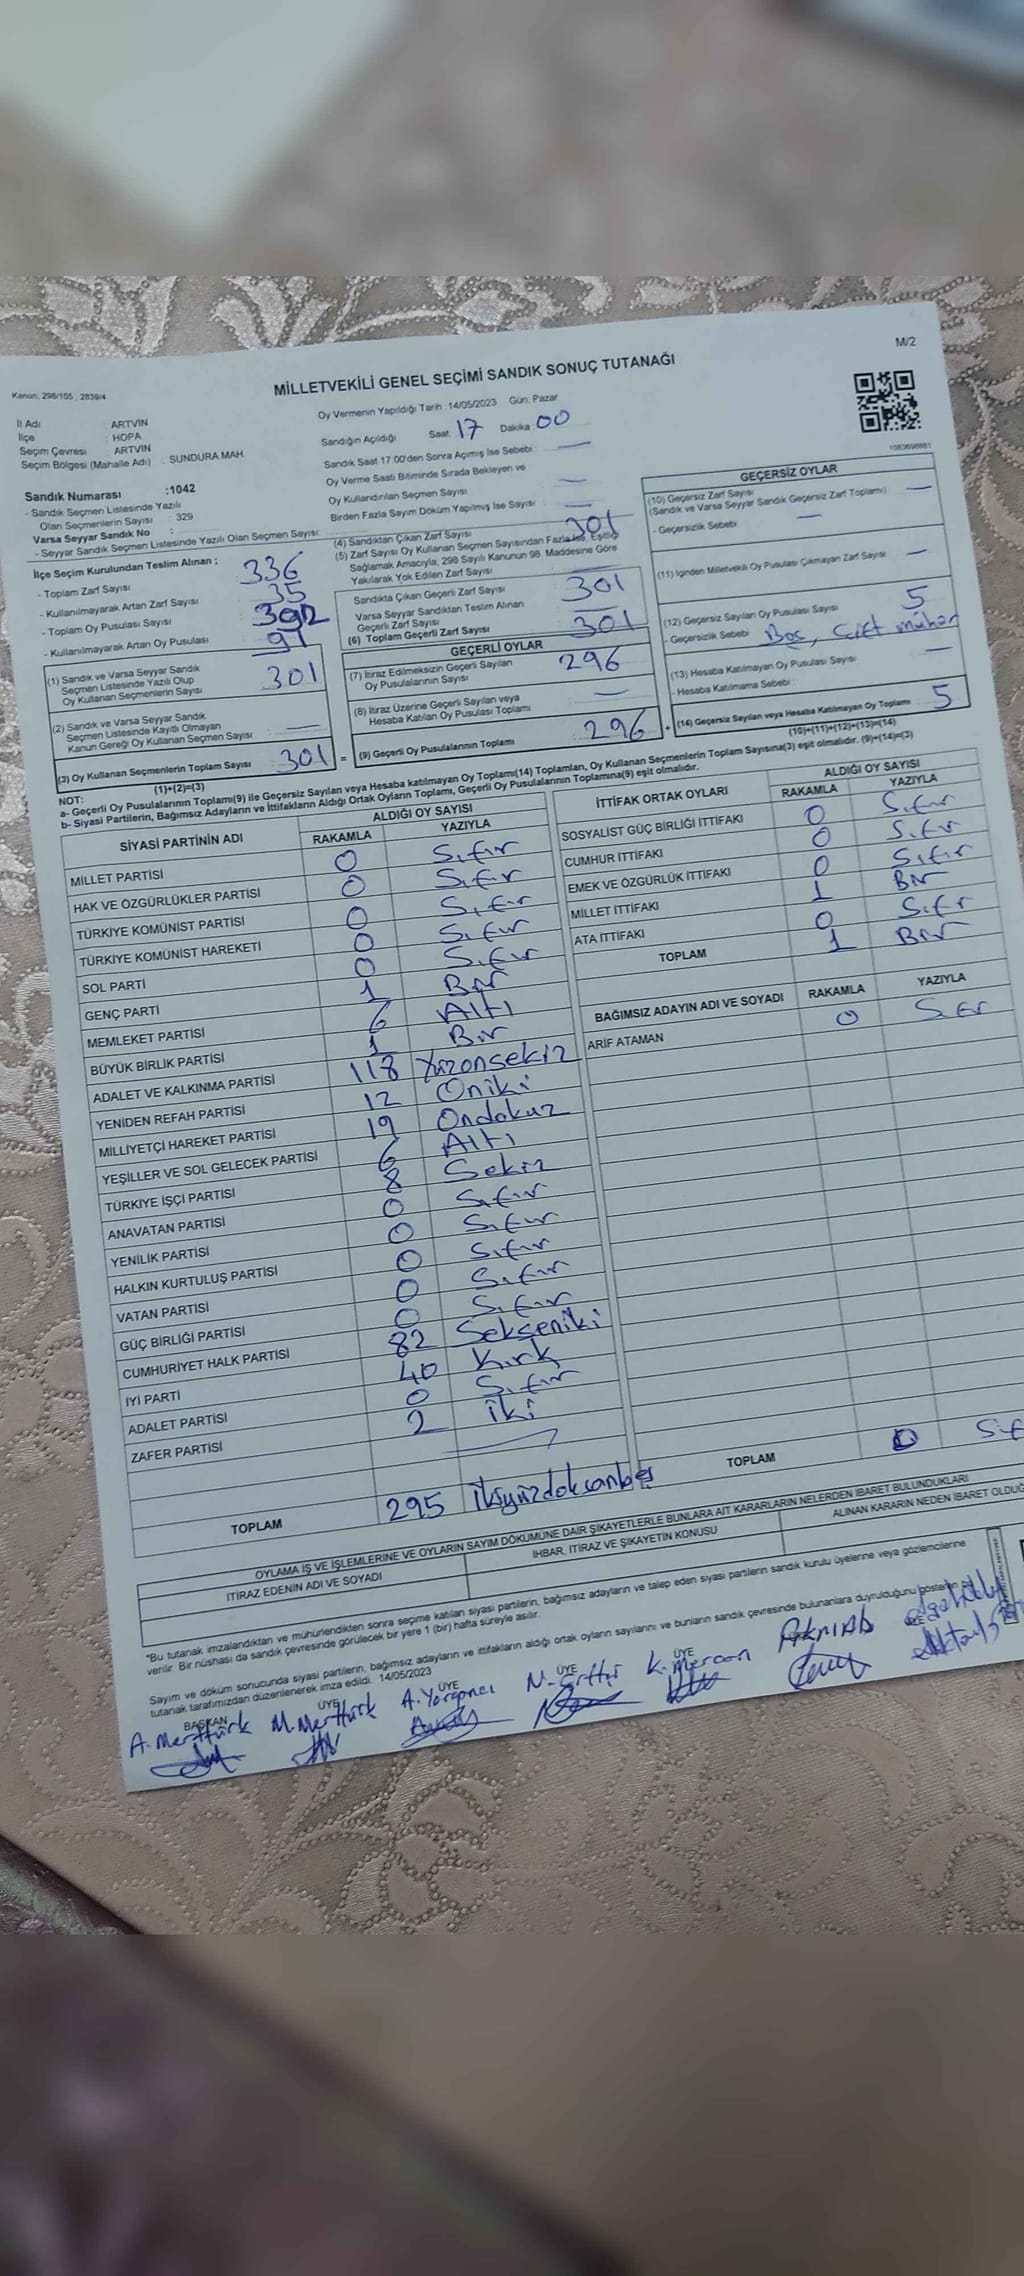 M/2
MİLLETVEKİLİ GENEL SEÇİMİ SANDIK SONUÇ TUTANAĞI
Kanun: 298/105 ; 2839/4
İl Adı : ARTVİN
İlçe : HOPA
Seçim Çevresi : ARTVİN
Seçim Bölgesi (Mahalle Adı) : SUNDURA MAH.
Sandık Numarası :1042
- Sandık Seçmen Listesinde Yazılı
Olan Seçmenlerin Sayısı : 329
Varsa Seyyar Sandık No :
- Seyyar Sandık Seçmen Listesinde Yazılı Olan Seçmen Sayısı:
Oy Vermenin Yapıldığı Tarih : 14/05/2023 Gün: Pazar
Sandığın Açıldığı Saat: 17 Dakika 00
Sandık Saat 17.00'den Sonra Açımış İse Sebebi : —
Oy Verme Saati Bitiminde Sırada Bekleyen ve
Oy Kullandırılan Seçmen Sayısı —
Birden Fazla Sayım Döküm Yapılmış İse Sayısı —
İlçe Seçim Kurulundan Teslim Alınan ;
- Toplam Zarf Sayısı 336
- Kullanılmayarak Artan Zarf Sayısı 35
- Toplam Oy Pusulası Sayısı 392
- Kullanılmayarak Artan Oy Pusulası 91
(1) Sandık ve Varsa Seyyar Sandık
Seçmen Listesinde Yazılı Olup
Oy Kullanan Seçmenlerin Sayısı 301
(2) Sandık ve Varsa Seyyar Sandık
Seçmen Listesinde Kayıtlı Olmayan
Kanun Gereği Oy Kullanan Seçmen Sayısı : —
(3) Oy Kullanan Seçmenlerin Toplam Sayısı : 301
(1)+(2)=(3)
(4) Sandıktan Çıkan Zarf Sayısı 301
(5) Zarf Sayısı Oy Kullanan Seçmen Sayısından Fazla İse, Eşitliği
Sağlamak Amacıyla, 298 Sayılı Kanunun 98. Maddesine Göre
Yakılarak Yok Edilen Zarf Sayısı —
Sandıkta Çıkan Geçerli Zarf Sayısı 301
Varsa Seyyar Sandıktan Teslim Alınan
Geçerli Zarf Sayısı —
(6) Toplam Geçerli Zarf Sayısı 301
GEÇERLİ OYLAR
(7) İtiraz Edilmeksizin Geçerli Sayılan
Oy Pusulalarının Sayısı 296
(8) İtiraz Üzerine Geçerli Sayılan veya
Hesaba Katılan Oy Pusulası Toplamı —
(9) Geçerli Oy Pusulalarının Toplamı 296
GEÇERSİZ OYLAR
(10) Geçersiz Zarf Sayısı —
(Sandık ve Varsa Seyyar Sandık Geçersiz Zarf Toplamı)
- Geçersizlik Sebebi —
(11) İçinden Milletvekili Oy Pusulası Çıkmayan Zarf Sayısı —
(12) Geçersiz Sayılan Oy Pusulası Sayısı 5
- Geçersizlik Sebebi Boş, Çift mühür
(13) Hesaba Katılmayan Oy Pusulası Sayısı —
- Hesaba Katılmama Sebebi :
(14) Geçersiz Sayılan veya Hesaba Katılmayan Oy Toplamı 5
(10)+(11)+(12)+(13)=(14)
NOT:
a- Geçerli Oy Pusulalarının Toplamı(9) ile Geçersiz Sayılan veya Hesaba katılmayan Oy Toplamı(14) Toplamları, Oy Kullanan Seçmenlerin Toplam Sayısına(3) eşit olmalıdır. (9)+(14)=(3)
b- Siyasi Partilerin, Bağımsız Adayların ve İttifakların Aldığı Ortak Oyların Toplamı, Geçerli Oy Pusulalarının Toplamına(9) eşit olmalıdır.
SİYASİ PARTİNİN ADI ALDIĞI OY SAYISI
RAKAMLA YAZIYLA
MİLLET PARTİSİ 0 Sıfır
HAK VE ÖZGÜRLÜKLER PARTİSİ 0 Sıfır
TÜRKİYE KOMÜNİST PARTİSİ 0 Sıfır
TÜRKİYE KOMÜNİST HAREKETİ 0 Sıfır
SOL PARTİ 0 Sıfır
GENÇ PARTİ 1 Bir
MEMLEKET PARTİSİ 6 Altı
BÜYÜK BİRLİK PARTİSİ 1 Bir
ADALET VE KALKINMA PARTİSİ 118 Yüzonsekiz
YENİDEN REFAH PARTİSİ 12 Oniki
MİLLİYETÇİ HAREKET PARTİSİ 19 Ondokuz
YEŞİLLER VE SOL GELECEK PARTİSİ 6 Altı
TÜRKİYE İŞÇİ PARTİSİ 8 Sekiz
ANAVATAN PARTİSİ 0 Sıfır
YENİLİK PARTİSİ 0 Sıfır
HALKIN KURTULUŞ PARTİSİ 0 Sıfır
VATAN PARTİSİ 0 Sıfır
GÜÇ BİRLİĞİ PARTİSİ 0 Sıfır
CUMHURİYET HALK PARTİSİ 82 Sekseniki
İYİ PARTİ 40 Kırk
ADALET PARTİSİ 0 Sıfır
ZAFER PARTİSİ 2 İki
TOPLAM 295 İkiyüzdoksanbeş
İTTİFAK ORTAK OYLARI ALDIĞI OY SAYISI
RAKAMLA YAZIYLA
SOSYALİST GÜÇ BİRLİĞİ İTTİFAKI 0 Sıfır
CUMHUR İTTİFAKI 0 Sıfır
EMEK VE ÖZGÜRLÜK İTTİFAKI 0 Sıfır
MİLLET İTTİFAKI 1 Bir
ATA İTTİFAKI 0 Sıfır
TOPLAM 1 Bir
BAĞIMSIZ ADAYIN ADI VE SOYADI RAKAMLA YAZIYLA
ARİF ATAMAN 0 Sıfır
TOPLAM 0
OYLAMA İŞ VE İŞLEMLERİNE VE OYLARIN SAYIM DÖKÜMÜNE DAİR ŞİKAYETLERLE BUNLARA AİT KARARLARIN NELERDEN İBARET BULUNDUKLARI
İTİRAZ EDENİN ADI VE SOYADI İHBAR, İTİRAZ VE ŞİKAYETİN KONUSU ALINAN KARARIN NEDEN İBARET OLDUĞ
*Bu tutanak imzalandıktan ve mühürlendikten sonra seçime katılan siyasi partilerin, bağımsız adayların ve talep eden siyasi partilerin sandık kurulu üyelerine veya gözlemcilerine
verilir. Bir nüshası da sandık çevresinde görülecek bir yere 1 (bir) hafta süreyle asılır.
Sayım ve döküm sonucunda siyasi partilerin, bağımsız adayların ve ittifakların aldığı ortak oyların sayılarını ve bunların sandık çevresinde bulunanlara duyrulduğunu gösteren
tutanak tarafımızdan düzenlenerek imza edildi. 14/05/2023
BAŞKAN ÜYE ÜYE ÜYE ÜYE
A. Merttürk M. Merttürk